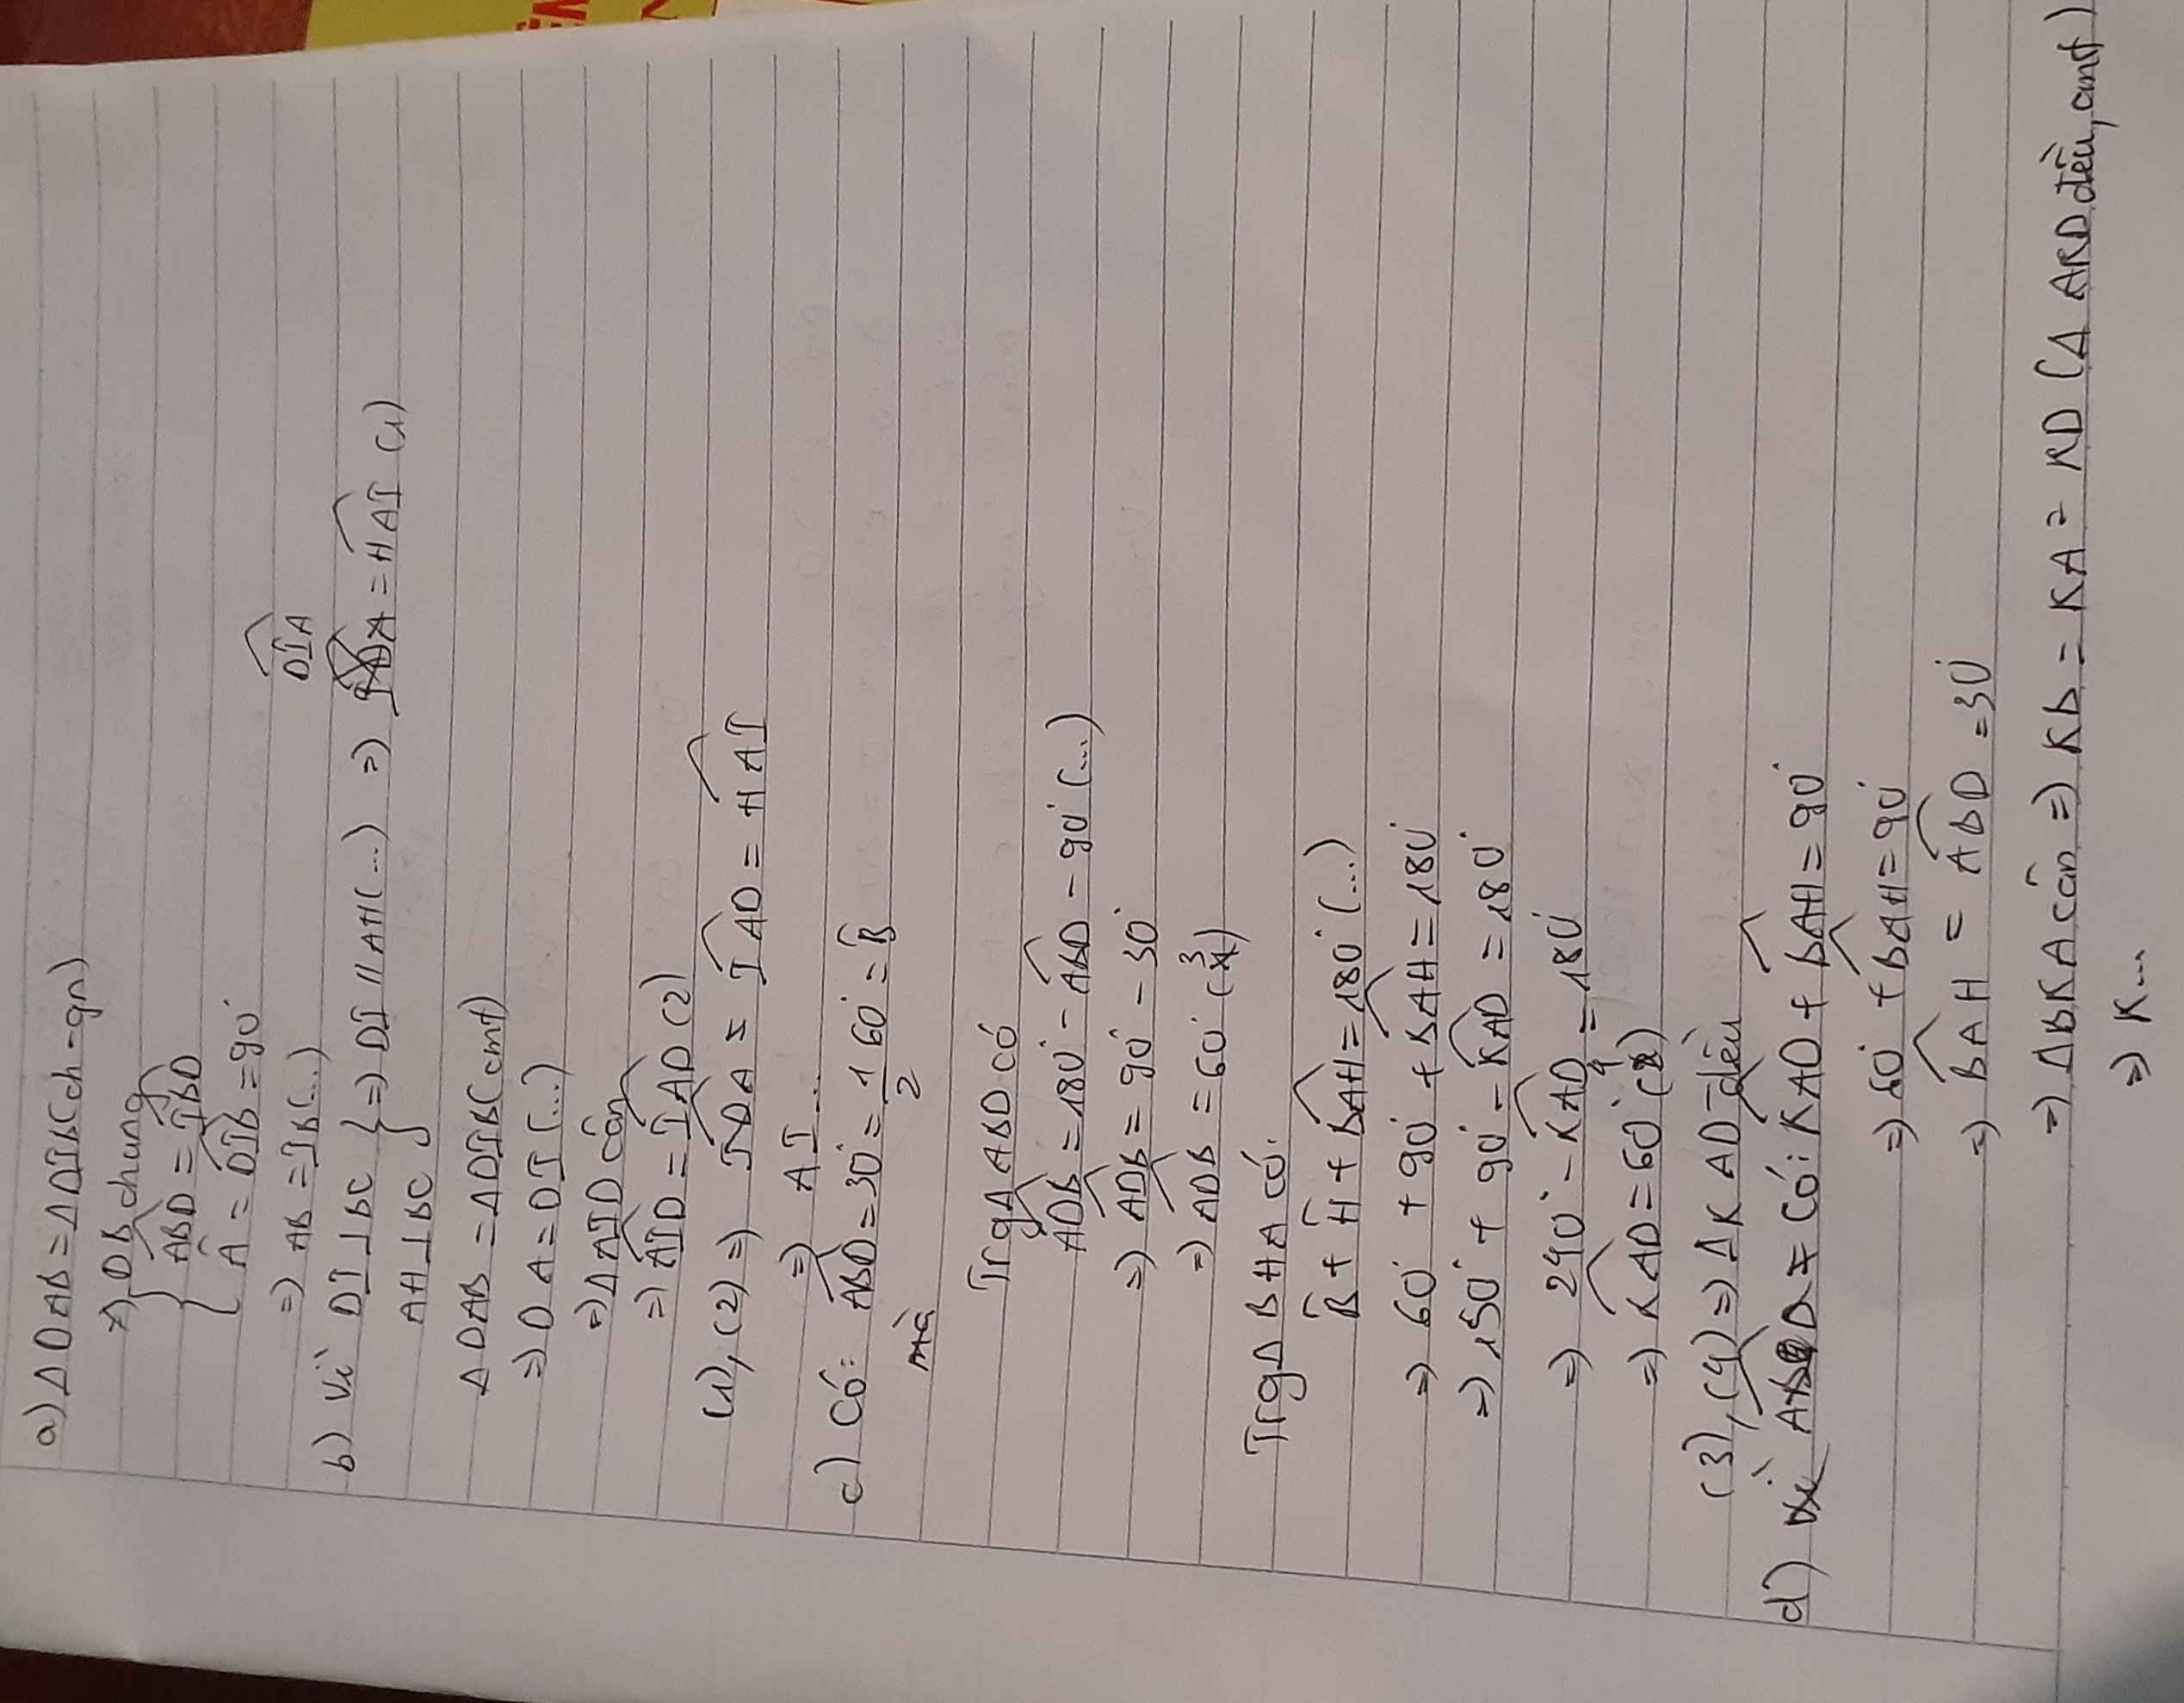 a) Δ DAB = Δ DIB (ch - gn)
DB chung
ABD = IBD
A = DIB = 90°
=) AB = IB (...)
DIA
b) Vì DI ⊥ BC } =) DI // AH (...) =) = HAI (1)
AH ⊥ BC
Δ DAB = Δ DIB (cmt)
=) DA = DI (...)
=) Δ AID cân
=) AID = IAD (2)
(1), (2) =) IDA = IAD = HAI
=) AI ...
c) Có: ABD = 30° = 1/2 60° = B
mà
Trg Δ ABD có
ADB = 180° - ABD - 90° (...)
=) ADB = 90° - 30°
=) ADB = 60° (3)
Trg Δ BHA có:
B + H + BAH = 180° (...)
=) 60° + 90° + BAH = 180°
=) 150° + 90° - KAD = 180°
=) 240° - KAD = 180°
=) KAD = 60° (4)
(3), (4) =) Δ KAD đều
d) Có: KAD + BAH = 90°
=) 60° + BAH = 90°
=) BAH = ABD = 30°
=) Δ BKA cân =) KB = KA = KD (Δ AKD đều, cmt)
=) K...